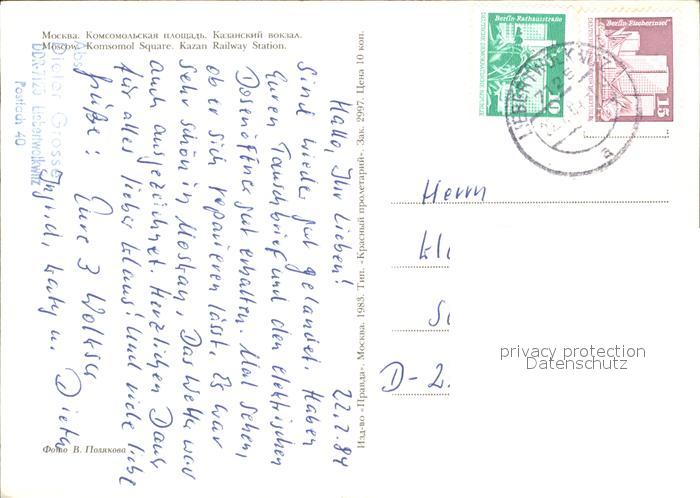 Москва. Комсомольская площадь. Казанский вокзал.
Moscow. Komsomol Square. Kazan Railway Station.
Hallo, Ihr Lieben! 22.2.84
Sind wieder gut gelandet. Haben
Euren Tauschbrief und den elektrischen
Dosenöffner gut erhalten. Mal sehen,
ob er sich reparieren lässt. Es war
sehr schön in Moskau, Das Wetter war
auch ausgezeichnet. Herzlichen Dank
für alles lieber Klaus! Und viele liebe
Grüße! Eure 3 Wolkser
Ingrid, Katy u. Dieter
Abs.:
Dieter Grosse
DDR-7125 Liebertwolkwitz
Postfach 40
Фото В. Полякова
Изд-во «Правда». Москва. 1983. Тип. «Красный пролетарий». Зак. 2997. Цена 10 коп.
Berlin-Rathausstraße
DEUTSCHE DEMOKRATISCHE REPUBLIK
10
Berlin-Fischerinsel
15
LIEBERTWOLKWITZ
7125
a
Herrn
Kl
S
D-2
privacy protection
Datenschutz